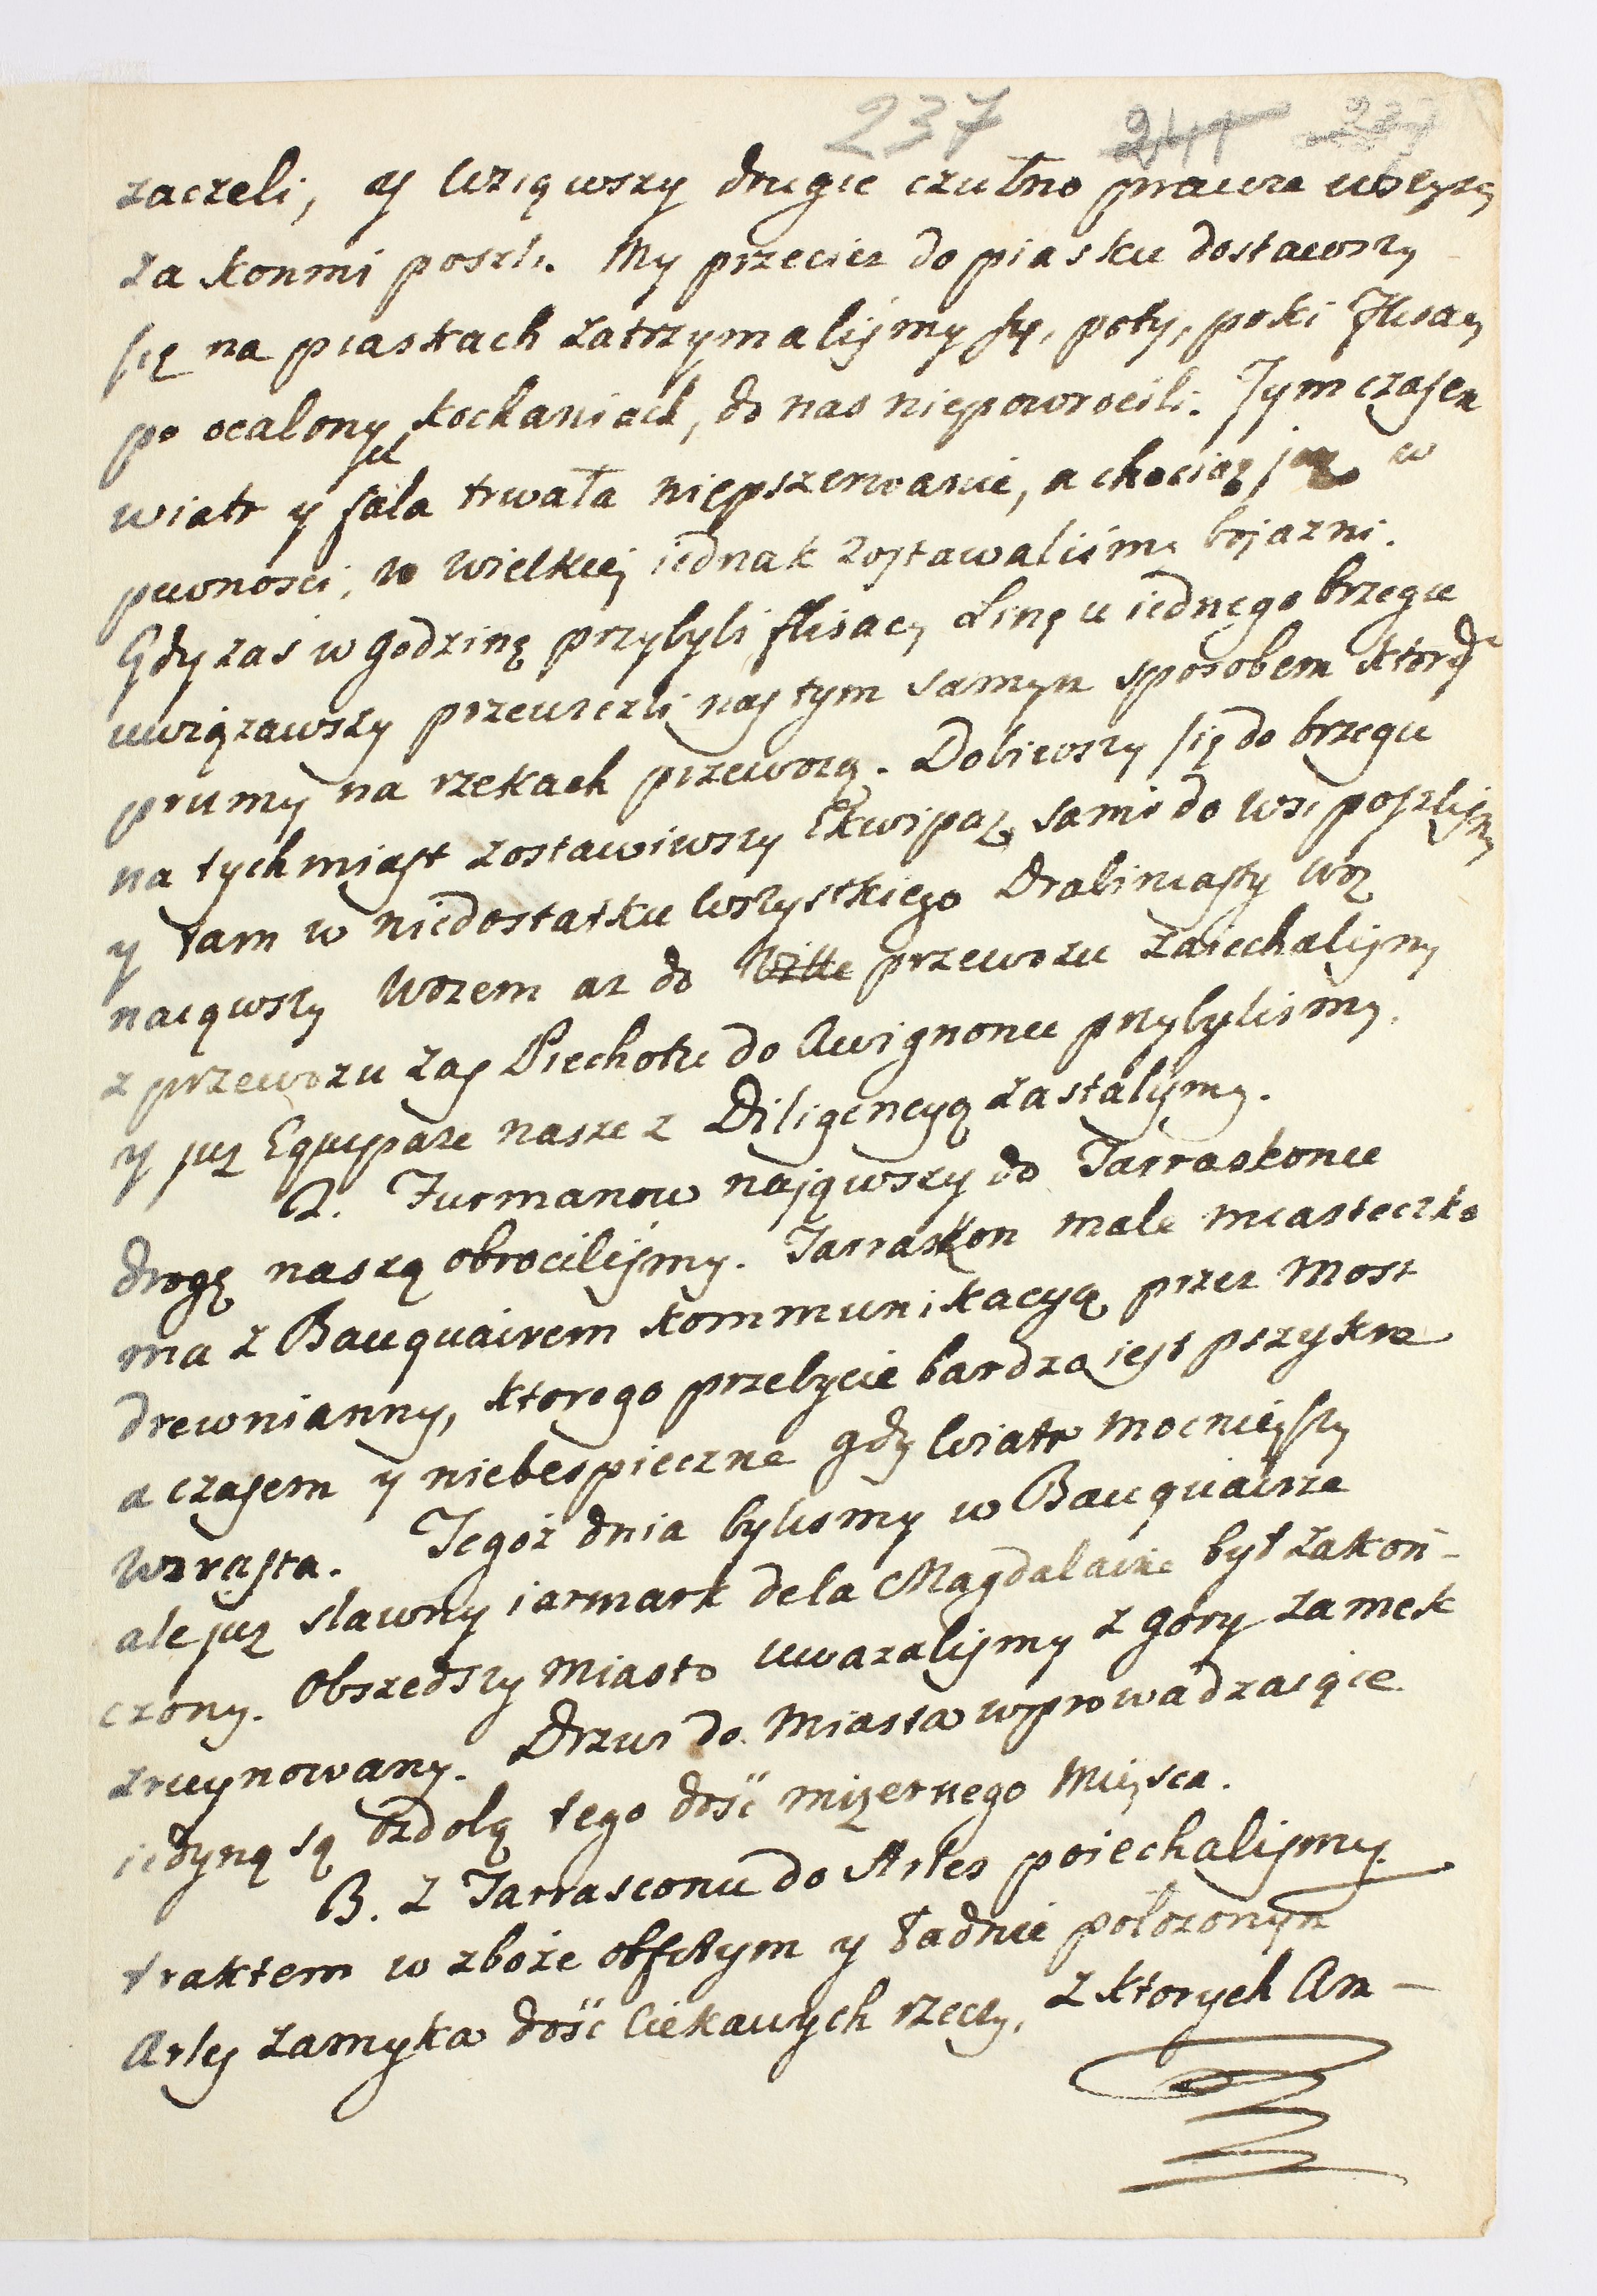 237 241 237
zaczeli, y wziąwszy drugie czułno prawie wszyscy
za konmi poszli. My przecież do piasku dostawszy
się na piaskach zatrzymaliśmy się, poty, poki Flisacy
po ocalonych kochaniach, do nas niepowrocili. Tym czasem
wiatr y fala trwała niepszerwanie, a chociaż już w
pewnosci, w wielkiej iednak zostawaliśmy bojazni.
Gdy zas w godzinę przybyli flisacy Linę u iednego brzegu
uwiązawszy przewiezli nas tym samym sposobem którym
prumy na rzekach przewożą. Dobiwszy się do brzegu
na tychmiast zostawiwszy Ekwipaż sami do wsi poszlismy
y tam w niedostatku wszystkiego Drabiniasty woz
naiąwszy wozem az do Ville przewozu zaiechalismy
z przewozu zas Piechotu do Awignonu przybylismy.
y już Equipaze nasze z Diligencyą zastalismy.
2. Furmanow nająwszy do Tarraskonu
drogę naszą obrocilismy. Tarraskon małe miasteczko
ma z Bauquairem kommunikacyą przez Most
drewnianny, ktorego przebycie bardzo iest pszykre
a czasem y niebespieczne gdy wiatr mocnieyszy
wzrasta. Tegoż dnia bylismy w Bauquairze
ale już sławny iarmark dela Magdalaine był zakoń-
czony. Obszedszy miasto uwazalismy z góry zamek
zruynowany. Drzwi do miasta wprowadzaiące
iedyną są ozdobą tego dość mizernego Mieysca.
B. z Tarrasconu do Arles poiechalismy.
traktem w zboże obfitym y ładnie położonym
Arles zamyka dość ciekawych rzeczy, z ktorych Am-